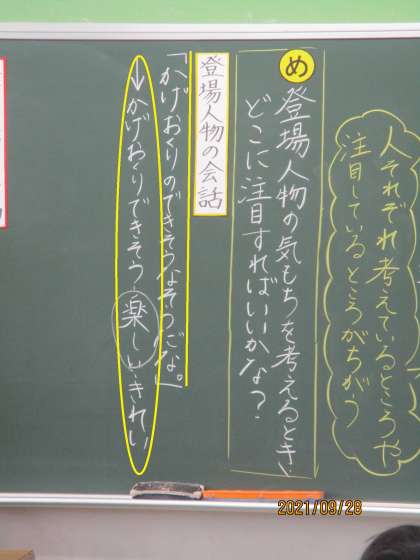 人それぞれ考えているところや
注目しているところがちがう
め 登場人物の気もちを考えるとき、
どこに注目すればいいかな？
登場人物の会話
「かげおくりのできそうなそらだな。」
↓かげおくりできそう 楽しい きれい
2021/09/28